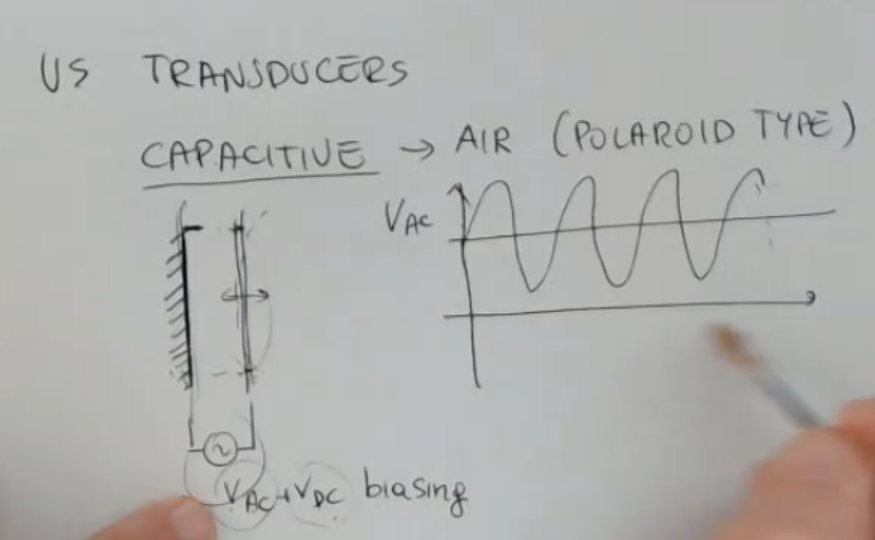 US TRANSDUCERS
CAPACITIVE → AIR (POLAROID TYPE)
VAC
~
VAC+VDC biasing